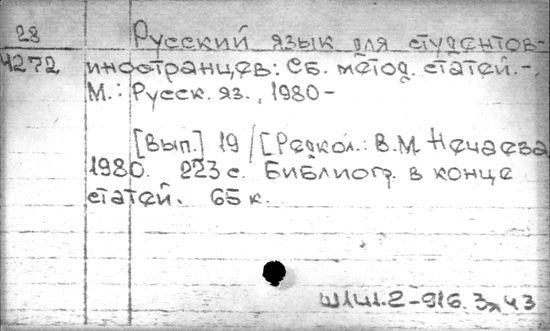 28 Русский язык для студентов-
4272 иностранцев: Сб. метод. статей. -
М.: Русск. яз., 1980 -
[Вып.] 19 / [Редкол.: В.М. Нечаева
1980. 223 с. Библиогр. в конце
статей. 65 к.
Ш141.2-916.3я43